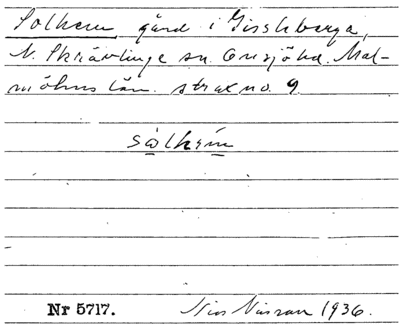 Solhem, gård i Gisslaberga,
N. Skrävlinge sn. Onsjö hd. Mal-
möhus län. strax no. 9.
sòlhém
Nr 5717. Nils Nilsson 1936.